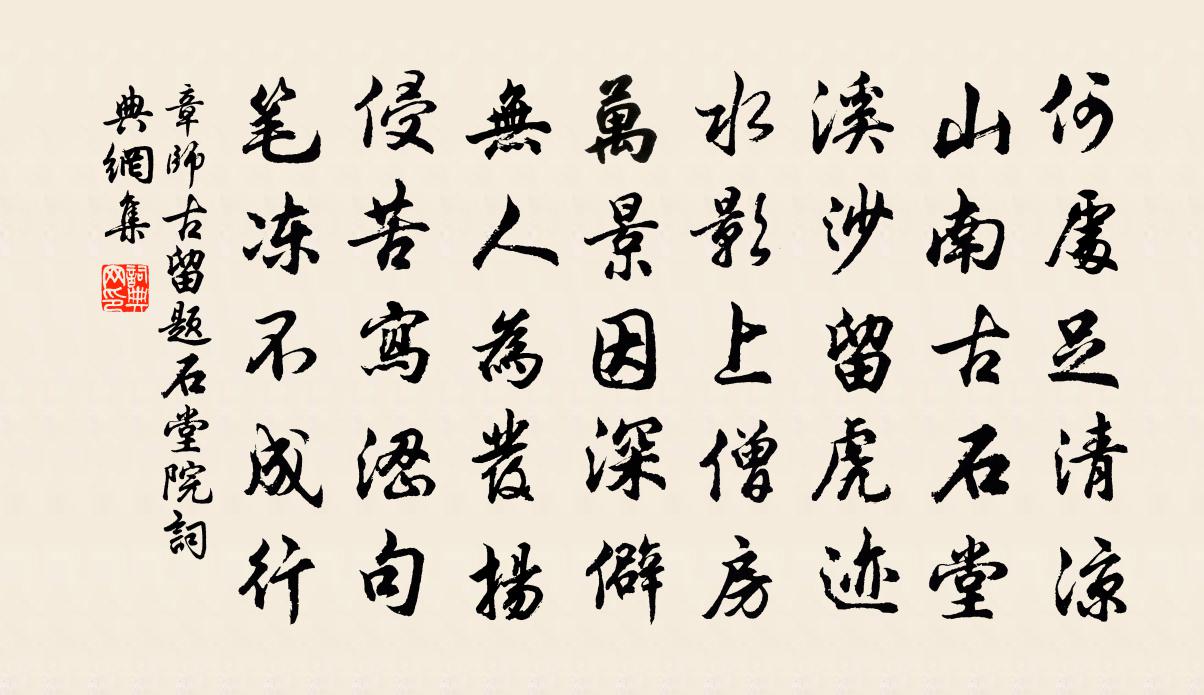 何處足清涼
山南古石堂
溪沙留虎迹
水影上僧房
萬景因深僻
無人為發揚
侵苦寫澀句
笔冻不成行
章師古留题石堂院詞
典網集
詞典
网印